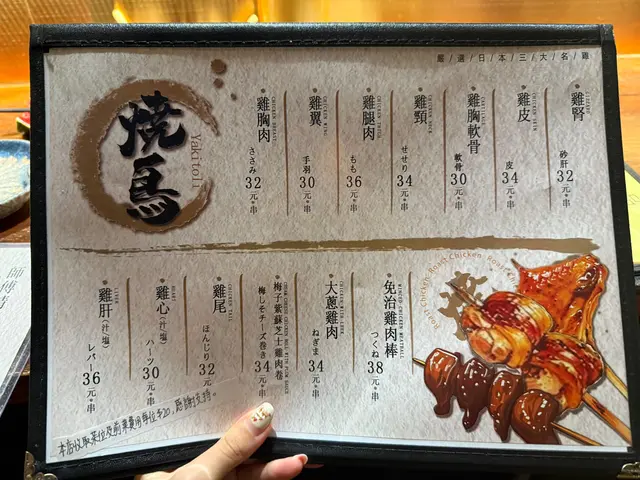 嚴/選/日/本/三/大/名/雞
燒鳥
Yakitori
雞腎
砂肝
32元*串
CHICKEN SKIN
雞皮
皮
34元*串
雞胸軟骨
軟骨
30元*串
CHICKEN NECK
雞頸
せせり
34元*串
CHICKEN THIGH
雞腿肉
もも
36元*串
CHICKEN WING
雞翼
手羽
30元*串
CHICKEN BREAST
雞胸肉
ささみ
32元*串
MINCED CHICKEN MEATBALL
免治雞肉棒
つくね
38元*串
大蔥雞肉
ねぎま
34元*串
梅子紫蘇芝士雞肉卷
梅しそチーズ巻き
34元*串
CHICKEN TAIL
雞尾
ほんじり
32元*串
HEART
雞心(汁/塩)
ハーツ
30元*串
LIVER
雞肝(汁/塩)
レバー
36元*串
Roast Chicken
本店收取茶位及前菜費用每位$20,多謝支持~
師傅